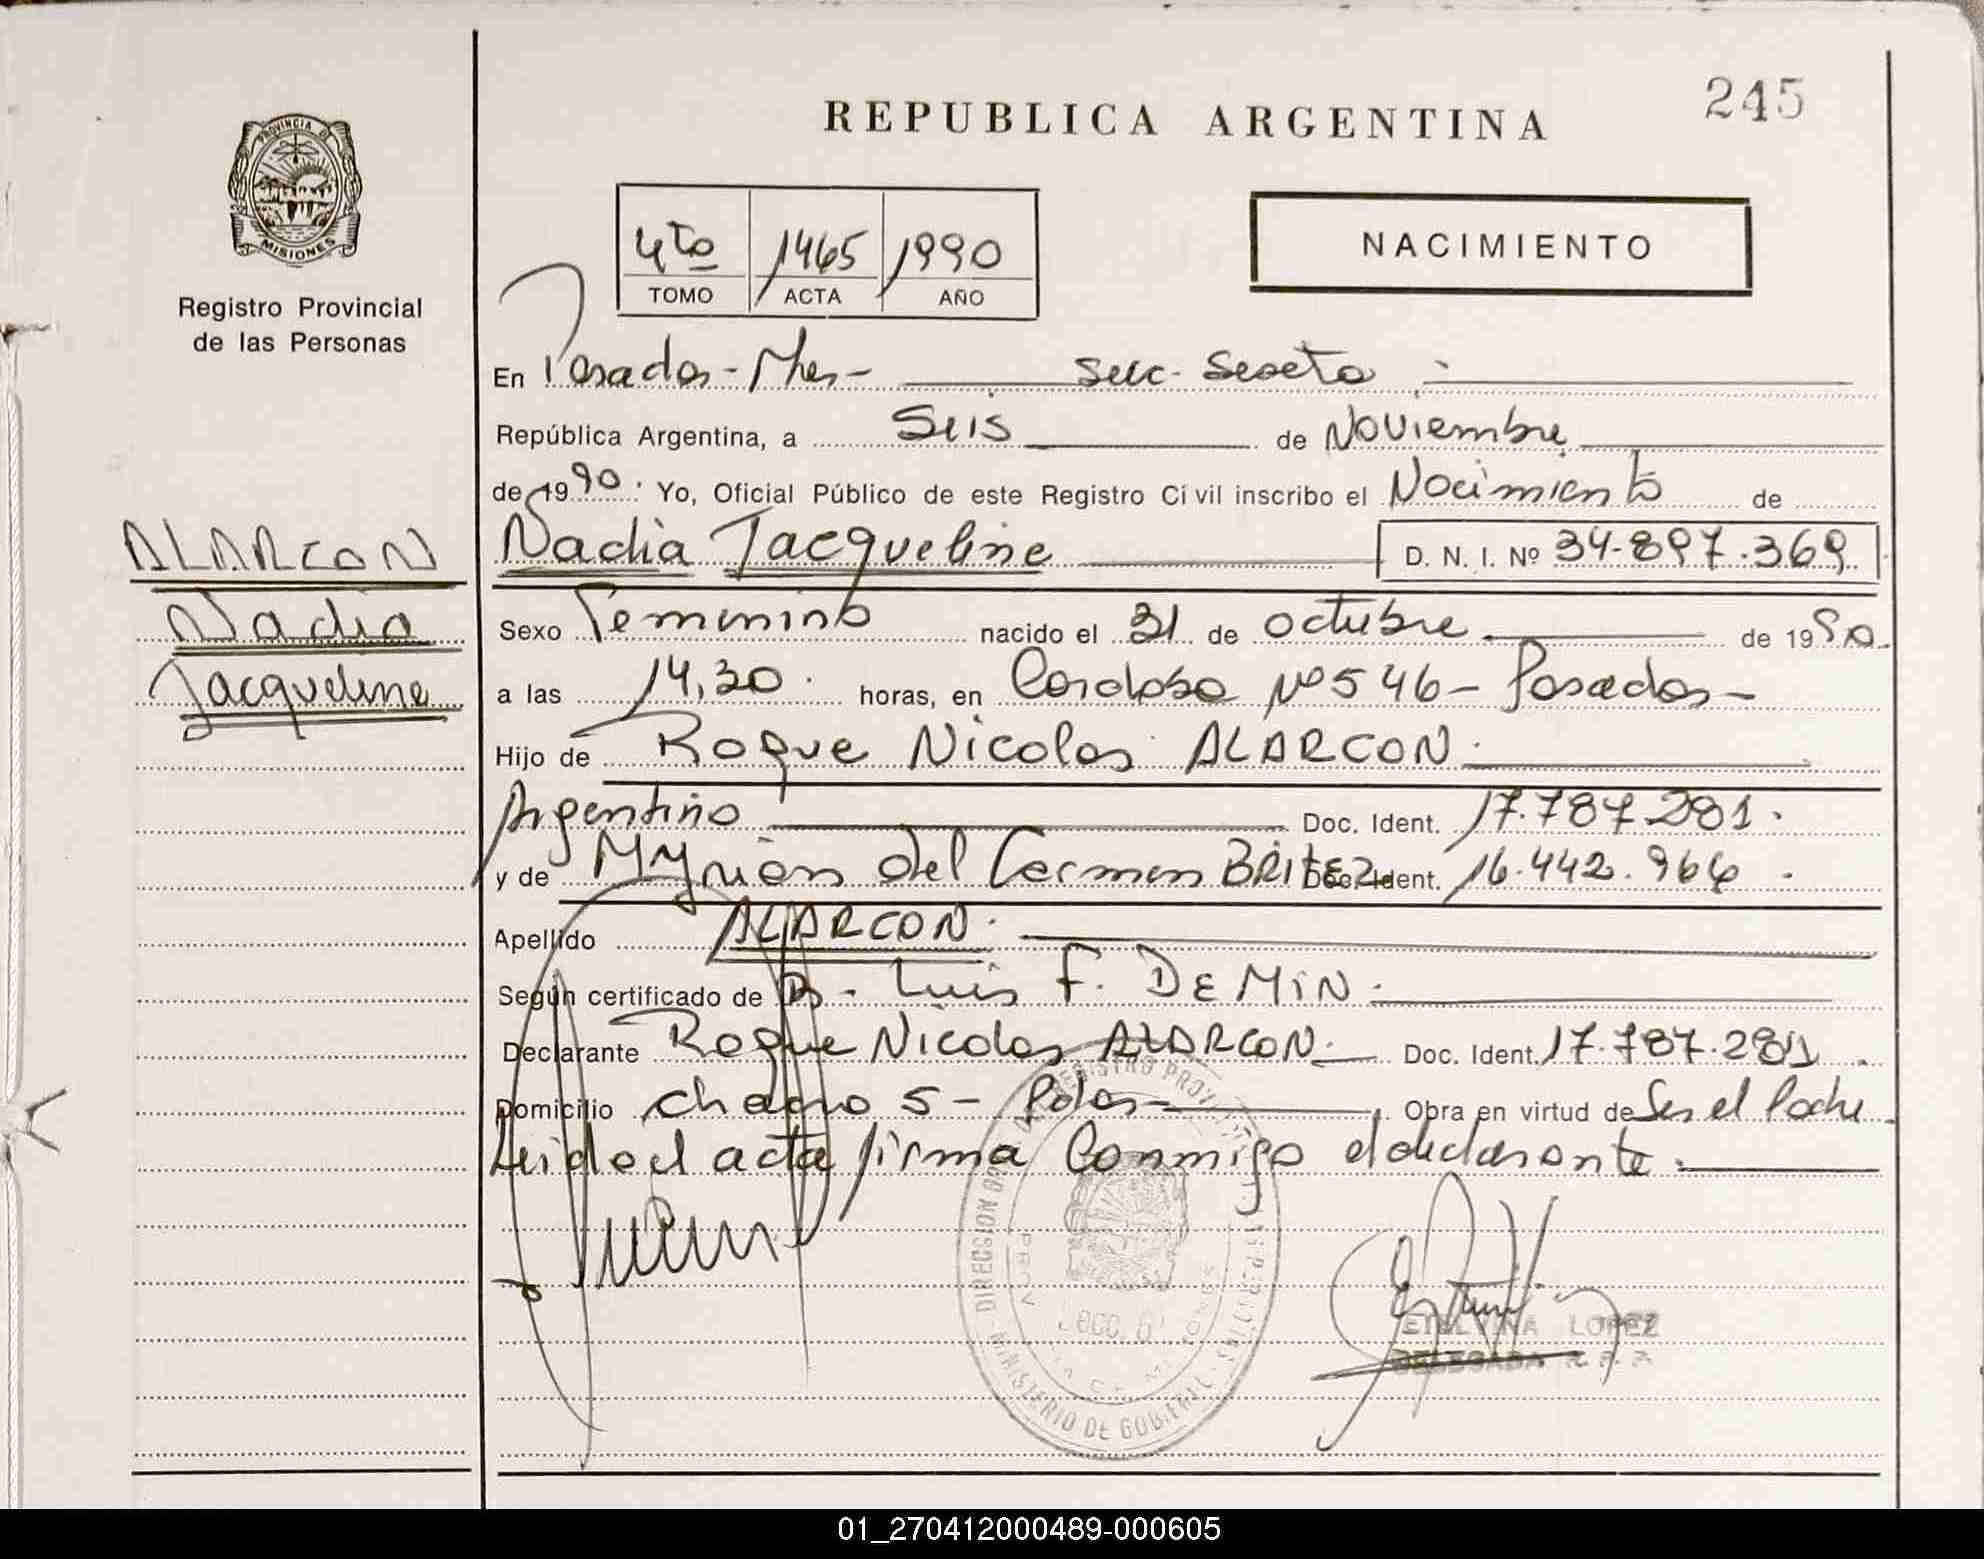 REPUBLICA ARGENTINA
245
PROVINCIA DE
MISIONES
Registro Provincial
de las Personas
4to 1465 1990
TOMO ACTA AÑO
NACIMIENTO
En Posadas - Mnes - secc. Sexta
República Argentina, a Seis de Noviembre
de 1990. Yo, Oficial Público de este Registro Civil inscribo el Nacimiento de
Nadia Jacqueline D. N. I. Nº 34.897.369
ALARCON
Nadia
Jacqueline
Sexo Femenino nacido el 31 de octubre de 1990.
a las 14,30. horas, en Cordoba Nº 546 - Posadas -
Hijo de Roque Nicolas ALARCON.
Argentino Doc. Ident. 17.787.281.
y de Myrian del Carmen BRITEZ Doc. Ident. 16.442.964.
Apellido ALARCON.
Según certificado de Dr. Luis F. DEMIN.
Declarante Roque Nicolas ALARCON. Doc. Ident. 17.787.281.
Domicilio 5 - Pdas - Obra en virtud de Ser el Padre
Leido el acta firma Conmigo el declarante.
REGISTRO PROV
DIRECCION
MINISTERIO DE GOBIERNO
ETELVINA LOPEZ
DELEGADA R.P.P.
01_270412000489-000605